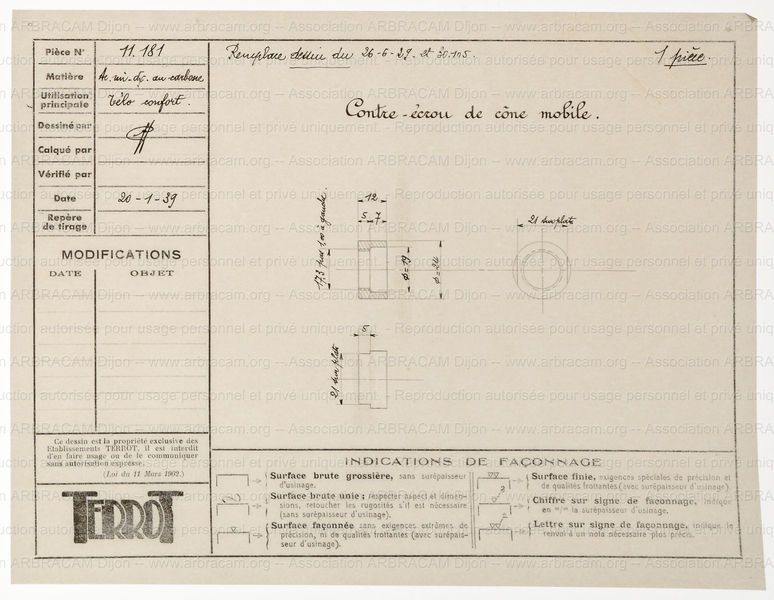 Pièce N° 11.181
Matière Ac. mi-dr. au carbone
Utilisation principale Vélo confort.
Dessiné par
Calqué par
Vérifié par
Date 20-1-39
Repère de tirage
MODIFICATIONS
DATE OBJET
Remplace dessin du 26-6-29 et 30.105
1 pièce.
Contre-écrou de cône mobile.
12
5 7
17,3 pas 1 m/m à gauche.
φ=19
φ=24
21 sur plats
5
21 sur plats
Ce dessin est la propriété exclusive des
Etablissements TERROT, il est interdit
d'en faire usage ou de le communiquer
sans autorisation expresse.
(Loi du 11 Mars 1902.)
TERROT
INDICATIONS DE FAÇONNAGE
Surface brute grossière, sans surépaisseur
d'usinage.
Surface brute unie; respecter aspect et dimen-
sions, retoucher les rugosités s'il est nécessaire
(sans surépaisseur d'usinage).
Surface façonnée sans exigences extrêmes de
précision, ni de qualités frottantes (avec surépais-
seur d'usinage).
Surface finie, exigences spéciales de précision et
de qualités frottantes (avec surépaisseur d'usinage).
Chiffre sur signe de façonnage, indique
en m/m la surépaisseur d'usinage.
Lettre sur signe de façonnage, indique le
renvoi à un nota nécessaire plus précis.
www.arbracam.org -- Association ARBRACAM Dijon
Reproduction autorisée pour usage personnel et privé uniquement.